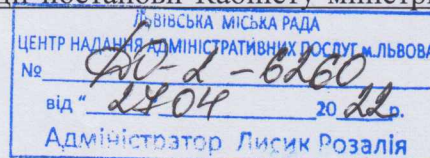 постанови Кабінету міністрі
ЛЬВІВСЬКА МІСЬКА РАДА
ЦЕНТР НАДАННЯ АДМІНІСТРАТИВНИХ ПОСЛУГ м.ЛЬВОВА
№ ДО-2-6260
від “ 27 04 20 22 р.
Адміністратор Лисик Розалія